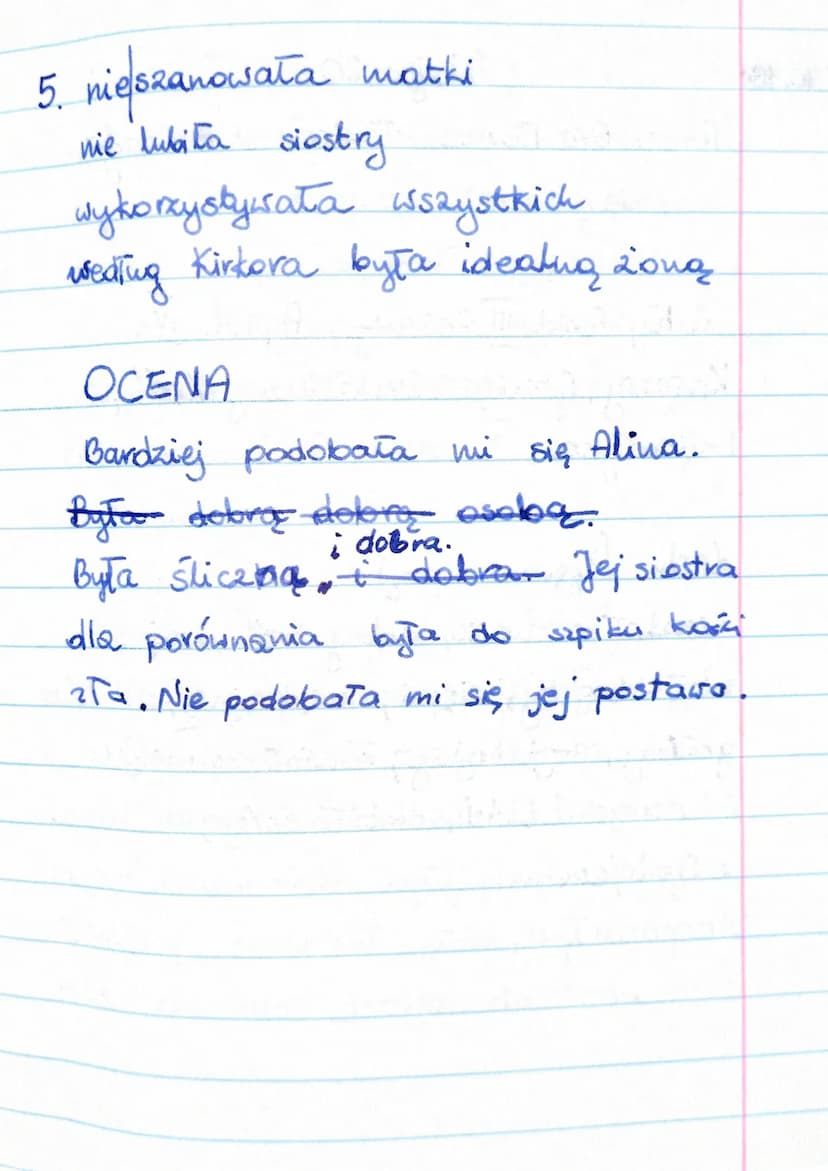 5. nie|szanowała matki
nie lubiła siostry
wykorzystywała wszystkich
według Kirkora była idealną żoną
OCENA
Bardziej podobała mi się Alina.
Była dobrą dobrą osobą.
i dobra.
Była śliczna, i dobra. Jej siostra
dla porównania była do szpiku kości
zła. Nie podobała mi się jej postawa.